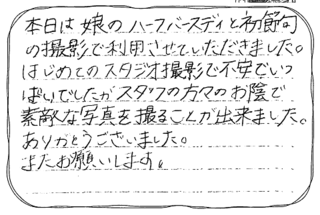 本日は娘のハーフバースディと初節句
の撮影で利用させていただきました。
はじめてのスタジオ撮影で不安でいっ
ぱいでしたがスタッフの方々のお陰で
素敵な写真を撮ることが出来ました。
ありがとうございました。
またお願いします。